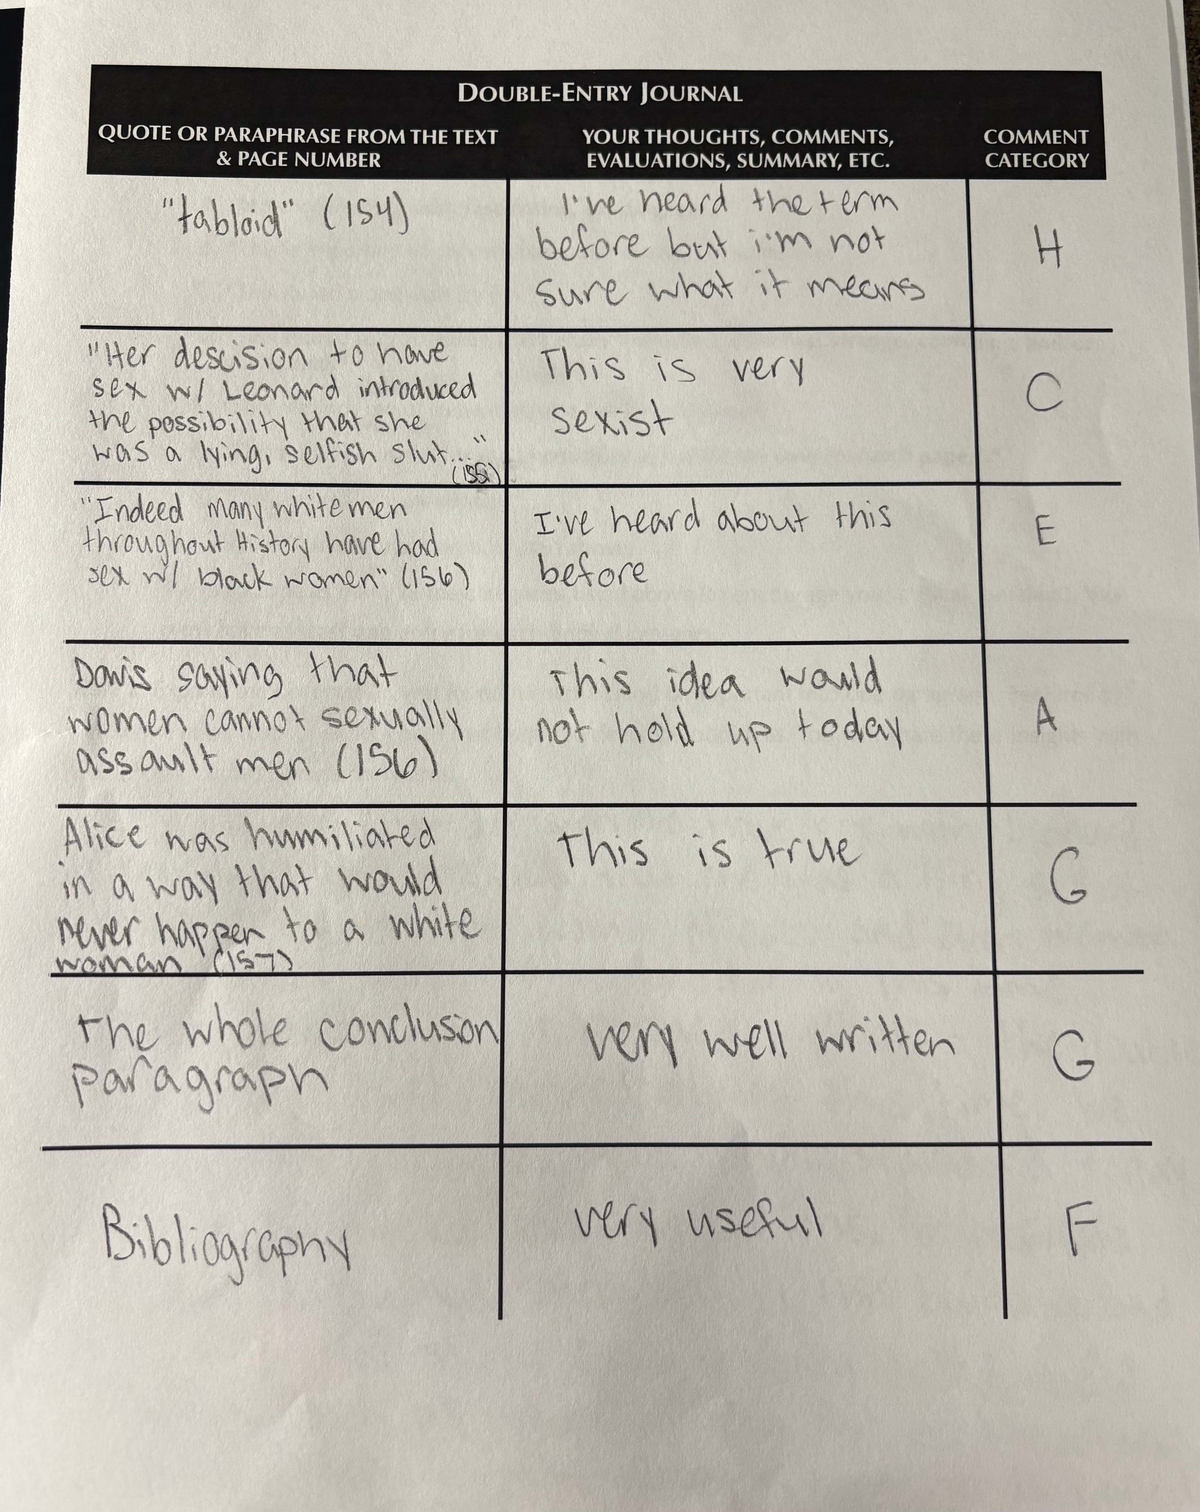 DOUBLE-ENTRY JOURNAL
QUOTE OR PARAPHRASE FROM THE TEXT
& PAGE NUMBER
YOUR THOUGHTS, COMMENTS,
EVALUATIONS, SUMMARY, ETC.
COMMENT
CATEGORY
"tabloid" (154)
I've heard the term
before but i'm not
sure what it means
H
"Her descision to have
sex w/ Leonard introduced
the possibility that she
was a lying, selfish slut..."
(155)
This is very
sexist
C
"Indeed many white men
throughout History have had
sex w/ black women" (156)
I've heard about this
before
E
Davis saying that
women cannot sexually
assault men (156)
This idea would
not hold up today
A
Alice was humiliated
in a way that would
never happen to a white
woman (157)
This is true
G
The whole conclusion
paragraph
very well written
G
Bibliography
very useful
F